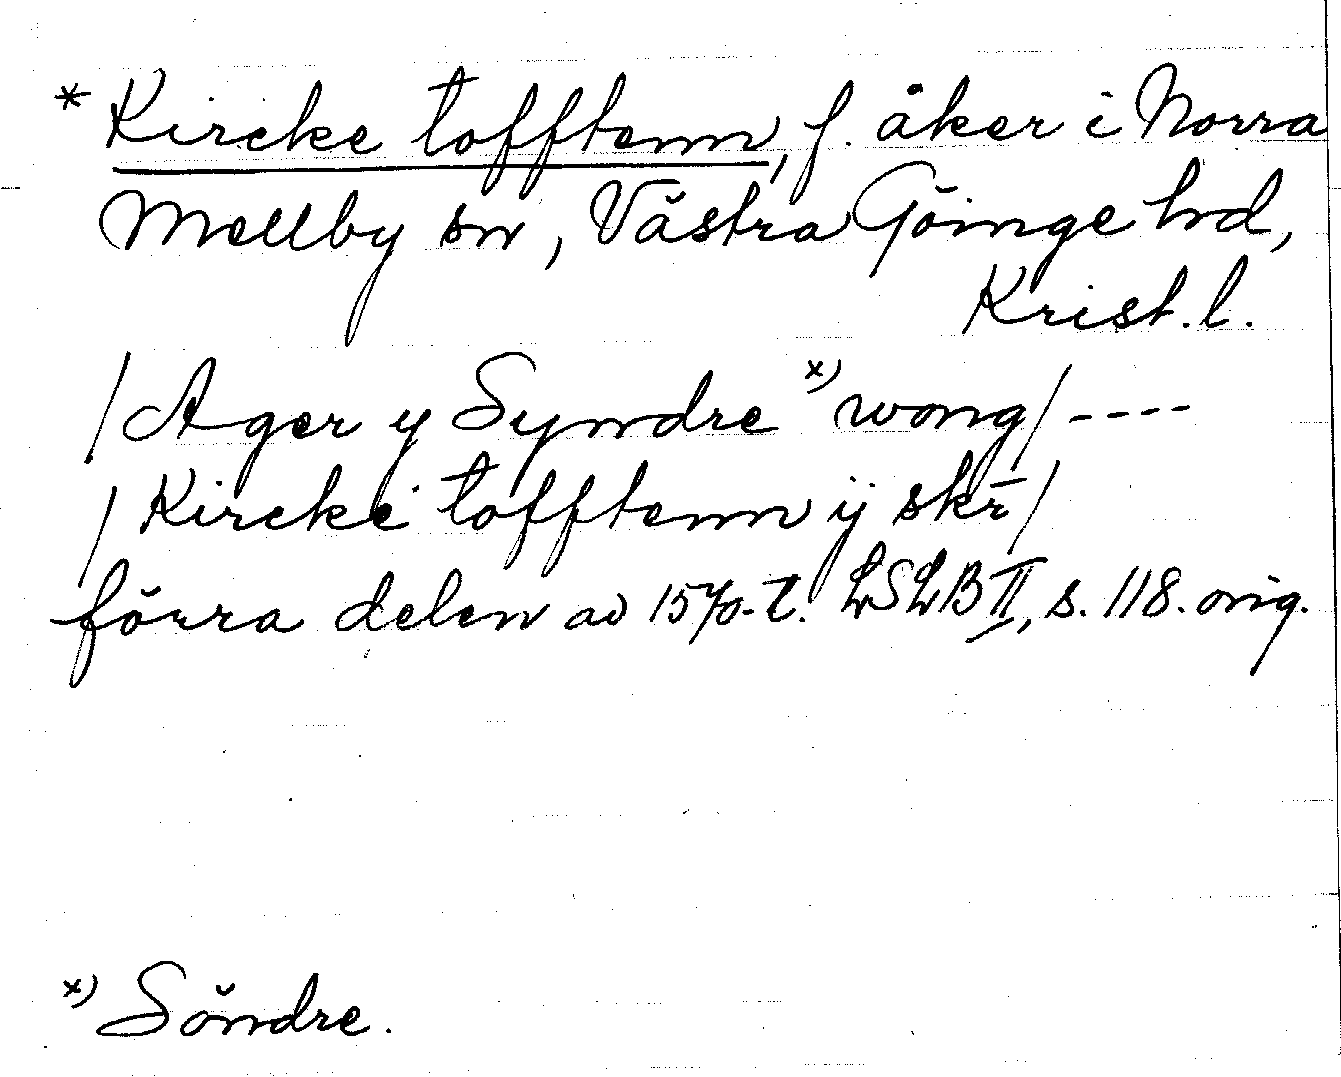 * Kircke tofftenn, f. åker i Norra
Mellby sn, Västra Göinge hd,
Krist. l.
/Ager y Syndre x) wong/----
/Kircke tofftenn ij skr̄/
förra delen av 1570-t. LSLB II, s. 118. orig.
x) Söndre.